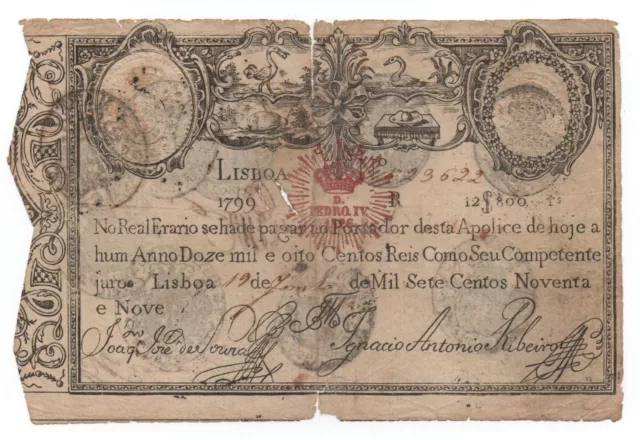 LISBOA 523622
1799 R 12$800 rs
D.
PEDRO IV
1826
No Real Erario se hade pagar ao Portador desta Apolice de hoje a
hum Anno Doze mil e oito Centos Reis Como Seu Competente
juro Lisboa 19 de de Mil Sete Centos Noventa
e Nove
Joaqm José de Souza Ignacio Antonio Ribeiro